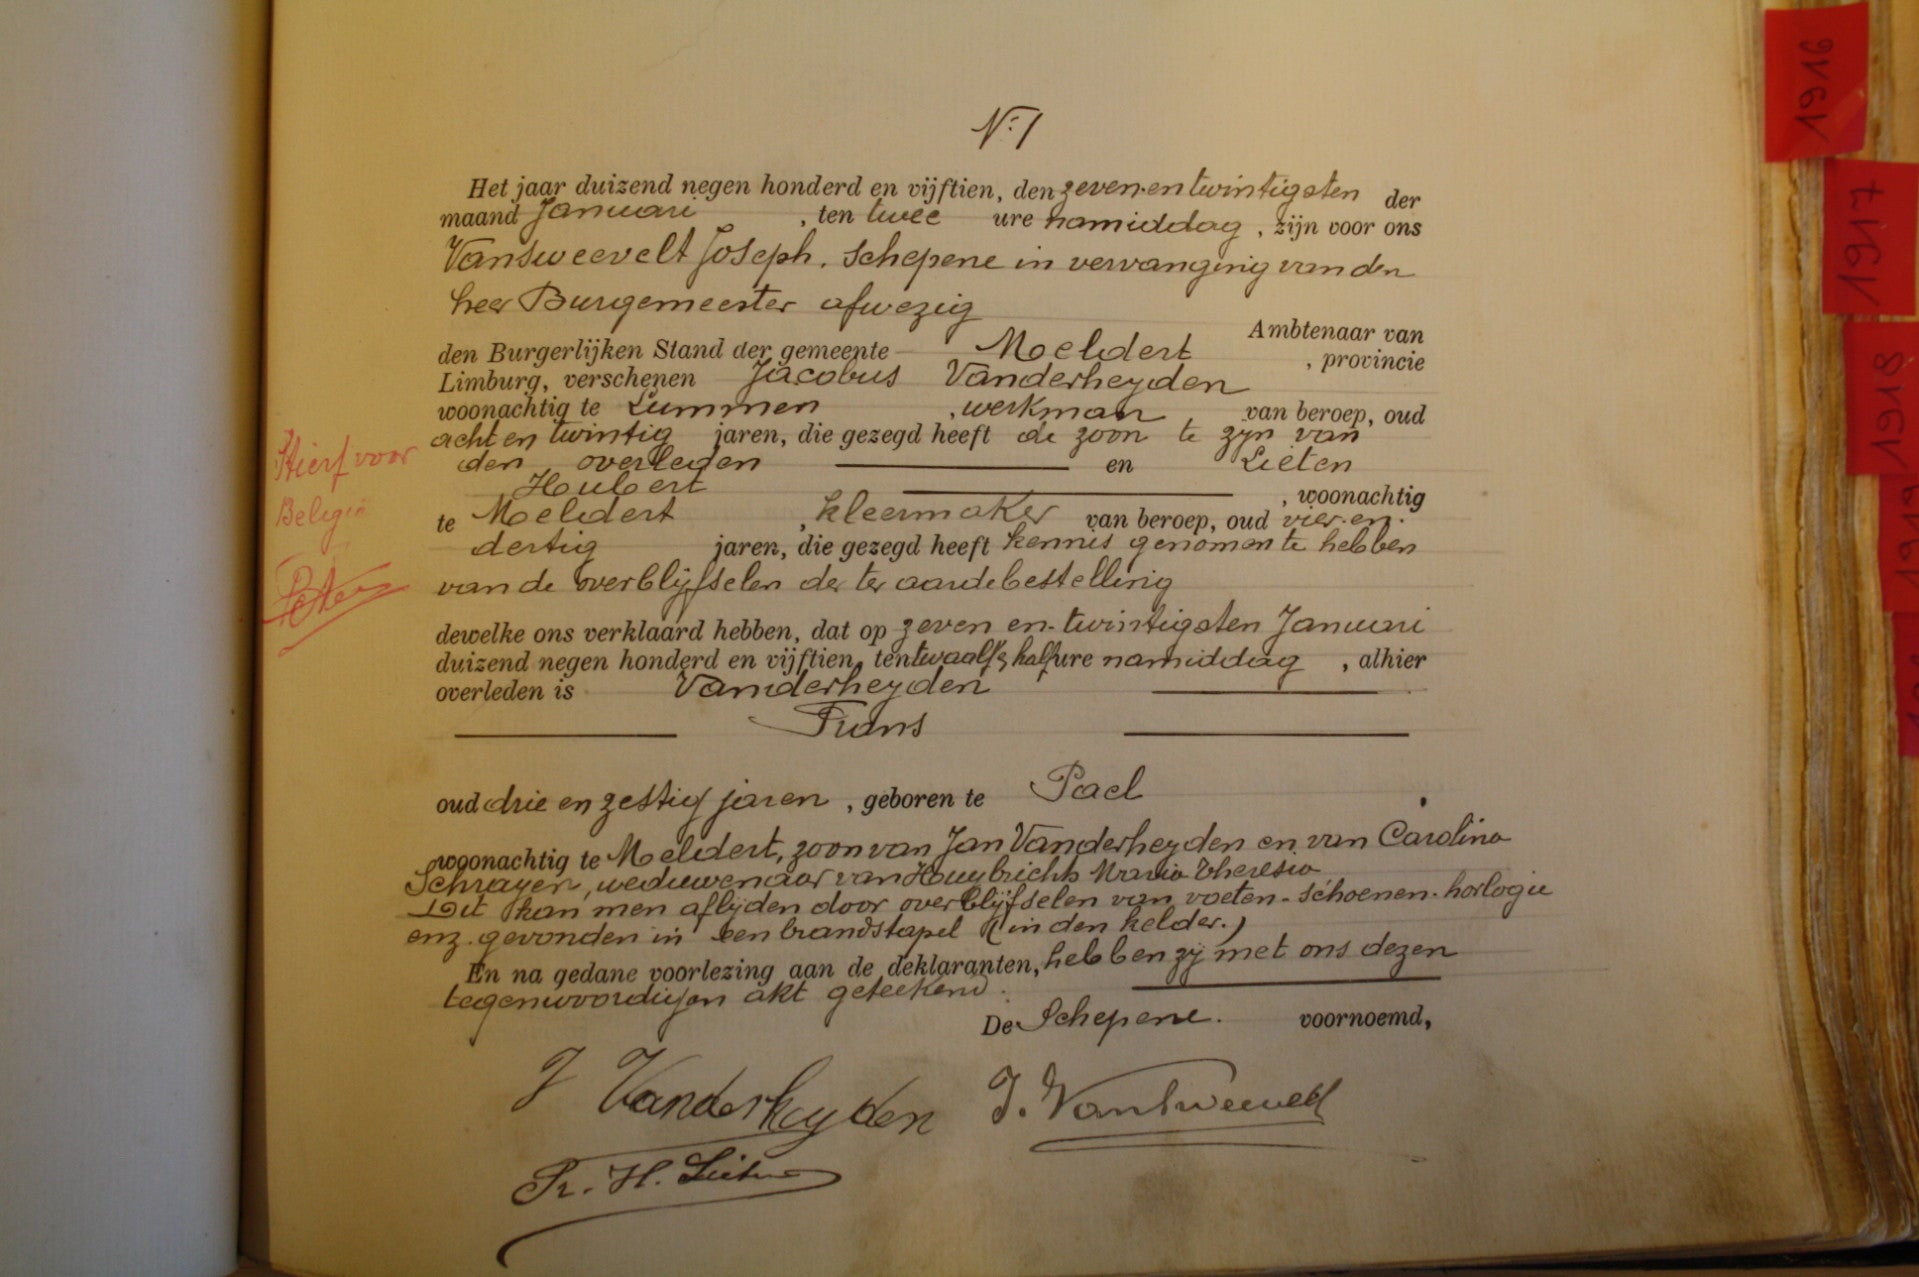 N:1
Het jaar duizend negen honderd en vijftien, den zeven-en twintigsten der
maand Januari , ten twee ure namiddag , zijn voor ons
Vansweevelt Joseph. Schepene in vervanging van den
heer Burgemeester afwezig
Ambtenaar van
den Burgerlijken Stand der gemeente Meldert , provincie
Limburg, verschenen Jacobus Vanderheyden
woonachtig te Lummen , werkman van beroep, oud
acht en twintig jaren, die gezegd heeft de zoon te zyn van
den overleden en Lieten
Hubert , woonachtig
te Meldert , kleermaker van beroep, oud vier-en-
dertig jaren, die gezegd heeft kennis genomen te hebben
van de overblijfselen der ter aardebestelling
dewelke ons verklaard hebben, dat op zeven en-twintigsten Januari
duizend negen honderd en vijftien, ten twaalf & half ure namiddag , alhier
overleden is Vanderheyden
Frans
oud drie en zestig jaren , geboren te Pael
woonachtig te Meldert, zoon van Jan Vanderheyden en van Carolina
Schrayen, weduwenaar van Huybrichts Maria Theresia
Dit kan men aflijden door overblijfselen van voeten - schoenen - horlogie
enz. gevonden in een brandstapel (in den kelder.)
En na gedane voorlezing aan de deklaranten, hebben zy met ons dezen
tegenwoordigen akt geteekend.
De Schepene. voornoemd,
J Vanderheyden J. Vansweevelt
Fr. H. Lieten
Stierf voor
Belegië
1916
1917
1918
1919